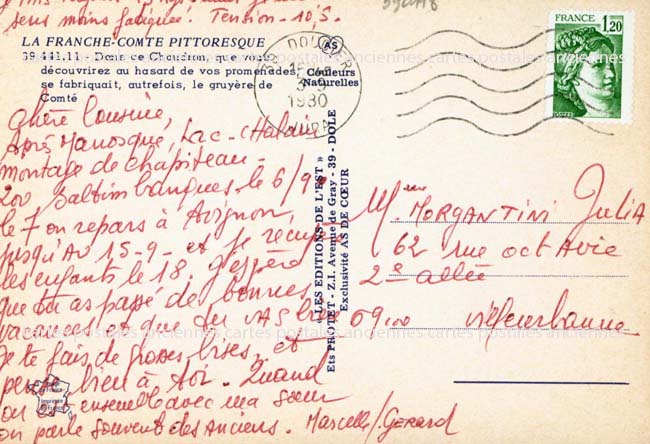 sens moins fatiguée. Tension - 10,5.
LA FRANCHE-COMTE PITTORESQUE
39.441.11 - Dans ce Chaudron, que vous
découvrirez au hasard de vos promenades,
se fabriquait, autrefois, le gruyère de
Comté
AS
Couleurs
Naturelles
chère cousine,
Après Manosque, Lac-Chalain
montage de chapiteau -
200 saltimbanques le 6/9
le 7 on repars à Avignon,
jusqu'au 15-9- et je récupère
les enfants le 18. j'espère
que tu as passé de bonnes
vacances et que tu vas bien
Je te fais de grosses bises - et
pense bien à toi - Quand
on ensemble avec ma sœur
on parle souvent des anciens. Marcelle/Gérard
« LES EDITIONS DE L'EST »
Ets PROTET - Z.I. Avenue de Gray - 39 - DOLE
Exclusivité AS DE CŒUR
1980
FRANCE
1,20
Mme MORGANTINI Julia
62 rue octavie
2e allée
69100 Villeurbanne
cartes postales anciennes cartes postales anciennes cartes postales anciennes